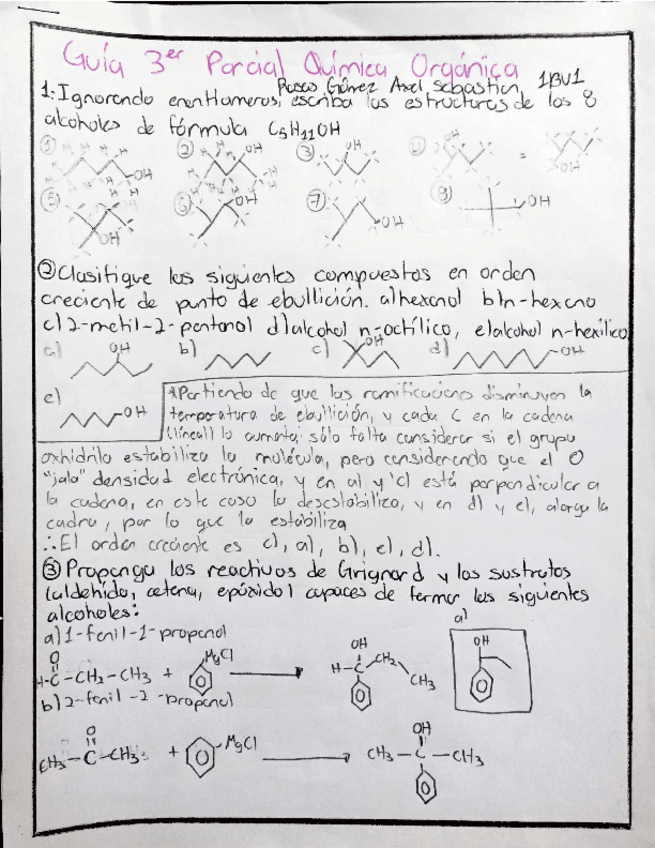 Guía 3er Parcial Química Orgánica
Axel Sebastian 1BV1
1. Ignorando enantiomeros, escriba las estructuras de los 8
alcoholes de fórmula C5H11OH
① OH ② OH ③ OH OH
⑤ OH ⑥ OH ⑦ OH ⑧ OH
② Clasifique los siguientes compuestos en orden
creciente de punto de ebullición. a) hexanol b) n-hexano
c) 2-metil-2-pentanol d) alcohol n-octílico, e) alcohol n-hexílico
a) OH b) c) OH d) OH
e) OH
*Partiendo de que las ramificaciones disminuyen la
temperatura de ebullición, y cada C en la cadena
(lineal) lo aumenta; sólo falta considerar si el grupo
oxhidrilo estabiliza la molécula, pero considerando que el O
"jala" densidad electrónica, y en a) y c) está perpendicular a
la cadena, en este caso la desestabiliza, y en d) y e), alarga la
cadna, por lo que la estabiliza
∴ El orden creciente es c), a), b), e), d).
③ Proponga los reactivos de Grignard y los sustratos
(aldehído, cetona, epóxido) capaces de formar los siguientes
alcoholes:
a) 1-fenil-1-propanol
a)
O MgCl OH OH
H-C-CH2-CH3 + H-C-CH2 CH3
b) 2-fenil-2-propanol
O MgCl OH
CH3-C-CH3 + CH3-C-CH3